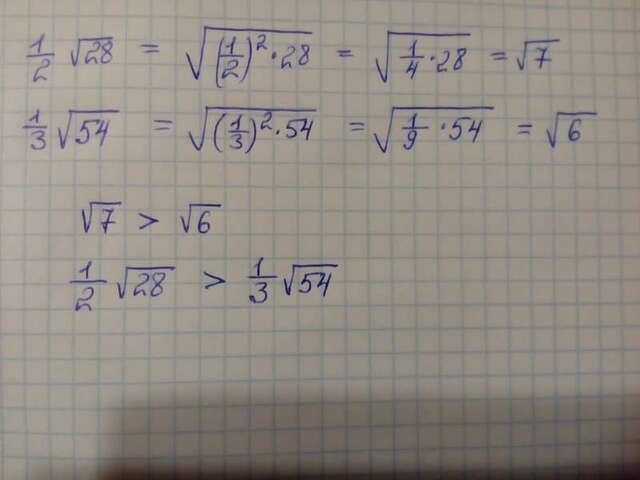 1/2 √28 = √((1/2)² · 28) = √(1/4 · 28) = √7
1/3 √54 = √((1/3)² · 54) = √(1/9 · 54) = √6
√7 > √6
1/2 √28 > 1/3 √54